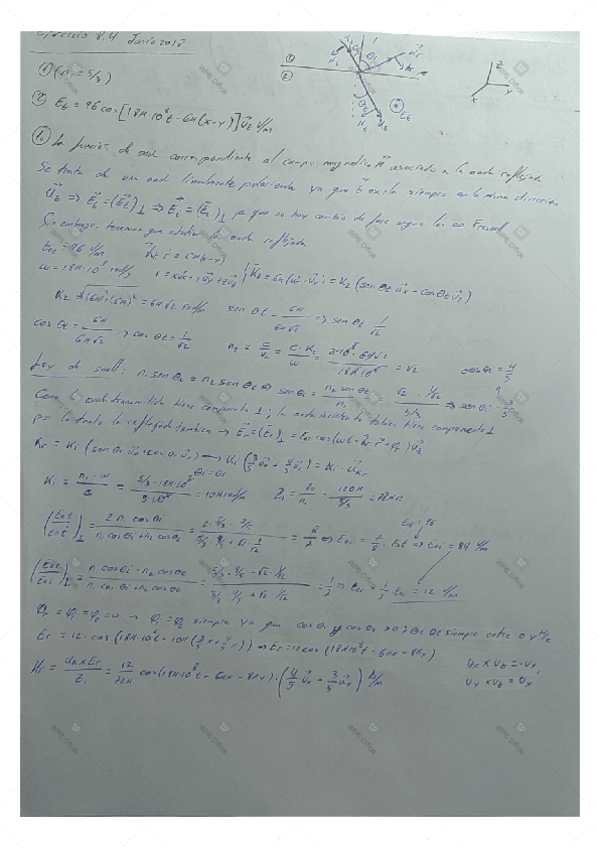 Ejercicio 8.4 Junio 2018
① (n₁ = 5/3)
② E_t = 96 cos [18π·10⁸t - 6π(x-y)] u_z V/m
La función de onda correspondiente al campo magnético H asociado a la onda reflejada
Se trata de una onda linealmente polarizada ya que E oscila siempre en la misma dirección
u_z ⇒ E_t = (E_t)⊥ ⇒ E_i = (E_i)⊥ ya que no hay cambio de fase según las ec. Fresnel
Sin embargo, tenemos que estudiar la onda reflejada
E_ot = 96 V/m K_t·r = 6π(x-y)
ω = 18π·10⁸ rad/s r = xu_x + yu_y + zu_z K_2 = 6π(u_x - u_y) = K_2 (sen θt u_x - cos θt u_y)
K_2 = √(6π)²+(6π)² = 6π√2 rad/m sen θt = 6π/6π√2 ⇒ sen θt = 1/√2
cos θt = 6π/6π√2 ⇒ cos θt = 1/√2 n_2 = c/v_2 = c·K_2/ω = 3·10⁸·6π√2/18π·10⁸ = √2 cos θi = 4/5
Ley de snell: n₁ sen θi = n₂ sen θt ⇒ sen θi = n₂ sen θt/n₁ = √2·1/√2/5/3 ⇒ sen θi = 3/5
Como la onda transmitida tiene componente ⊥; la onda incidente también tiene componente ⊥
por lo tanto la reflejada también → E_r = (E_r)⊥ = E_or cos(ωt - K_r·r + φ_r) u_z
K_r = K_i (sen θr u_x + cos θr u_y) → K_i (3/5 u_x + 4/5 u_y) = K_i·u_Kr
θr = θi
K_i = n₁·ω/c = 5/3·18π·10⁸/3·10⁸ = 10π rad/m Z_1 = Z_0/n₁ = 120π/5/3 = 72π Ω
E_ot = 96
(E_ot/E_oi)⊥ = 2 n₁ cos θi/n₁ cos θi + n₂ cos θt = 2·5/3·4/5/5/3·4/5 + √2·1/√2 = 8/7 ⇒ E_oi = 7/8 E_ot ⇒ E_oi = 84 V/m
(E_or/E_oi)⊥ = n₁ cos θi - n₂ cos θt/n₁ cos θi + n₂ cos θt = 5/3·4/5 - √2·1/√2/5/3·4/5 + √2·1/√2 = 1/7 ⇒ E_or = 1/7 E_oi = 12 V/m
φ_r = φ_i = φ_t = 0 → φ_i = φ_t siempre ya que cos θi y cos θt > 0; θi θt siempre entre 0 y π/2
E_r = 12·cos (18π·10⁸t - 10π(3/5 x + 4/5 y)) ⇒ E_r = 12 cos (18π·10⁸t - 6πx - 8πy)
H_r = u_Kr × E_r/Z_1 = 12/72π cos(18π·10⁸t - 6πx - 8πy)·(4/5 u_x - 3/5 u_y) A/m
u_x × u_z = -u_y
u_y × u_z = u_x